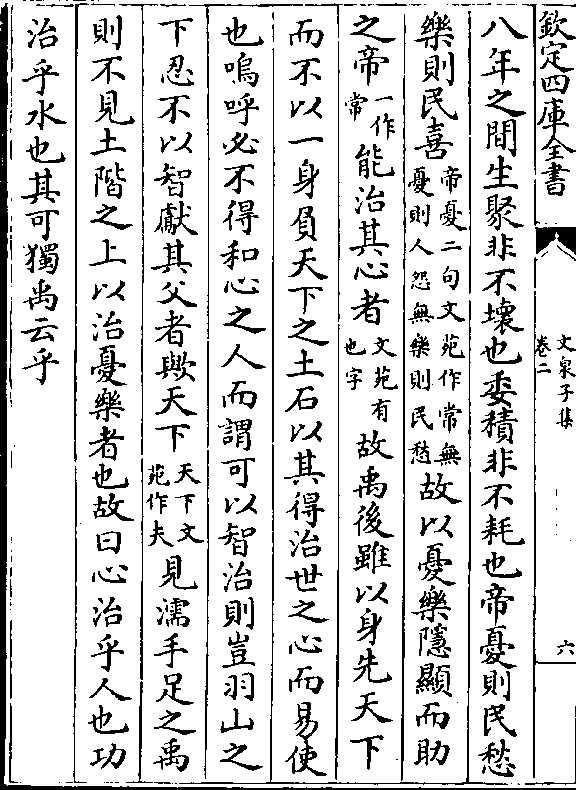 欽定四庫全書
文泉子集
卷二
六
八年之間生聚非不壞也委積非不耗也帝憂則民愁
樂則民喜帝憂二句文苑作常無憂則人怨無樂則民愁故以憂樂隱顯而助
之帝一作常能治其心者文苑有也字故禹後雖以身先天下
而不以一身負天下之土石以其得治世之心而易使
也嗚呼必不得和心之人而謂可以智治則豈羽山之
下忍不以智獻其父者歟天下天下文苑作夫見濡手足之禹
則不見土階之上以治憂樂者也故曰心治乎人也功
治乎水也其可獨禹云乎